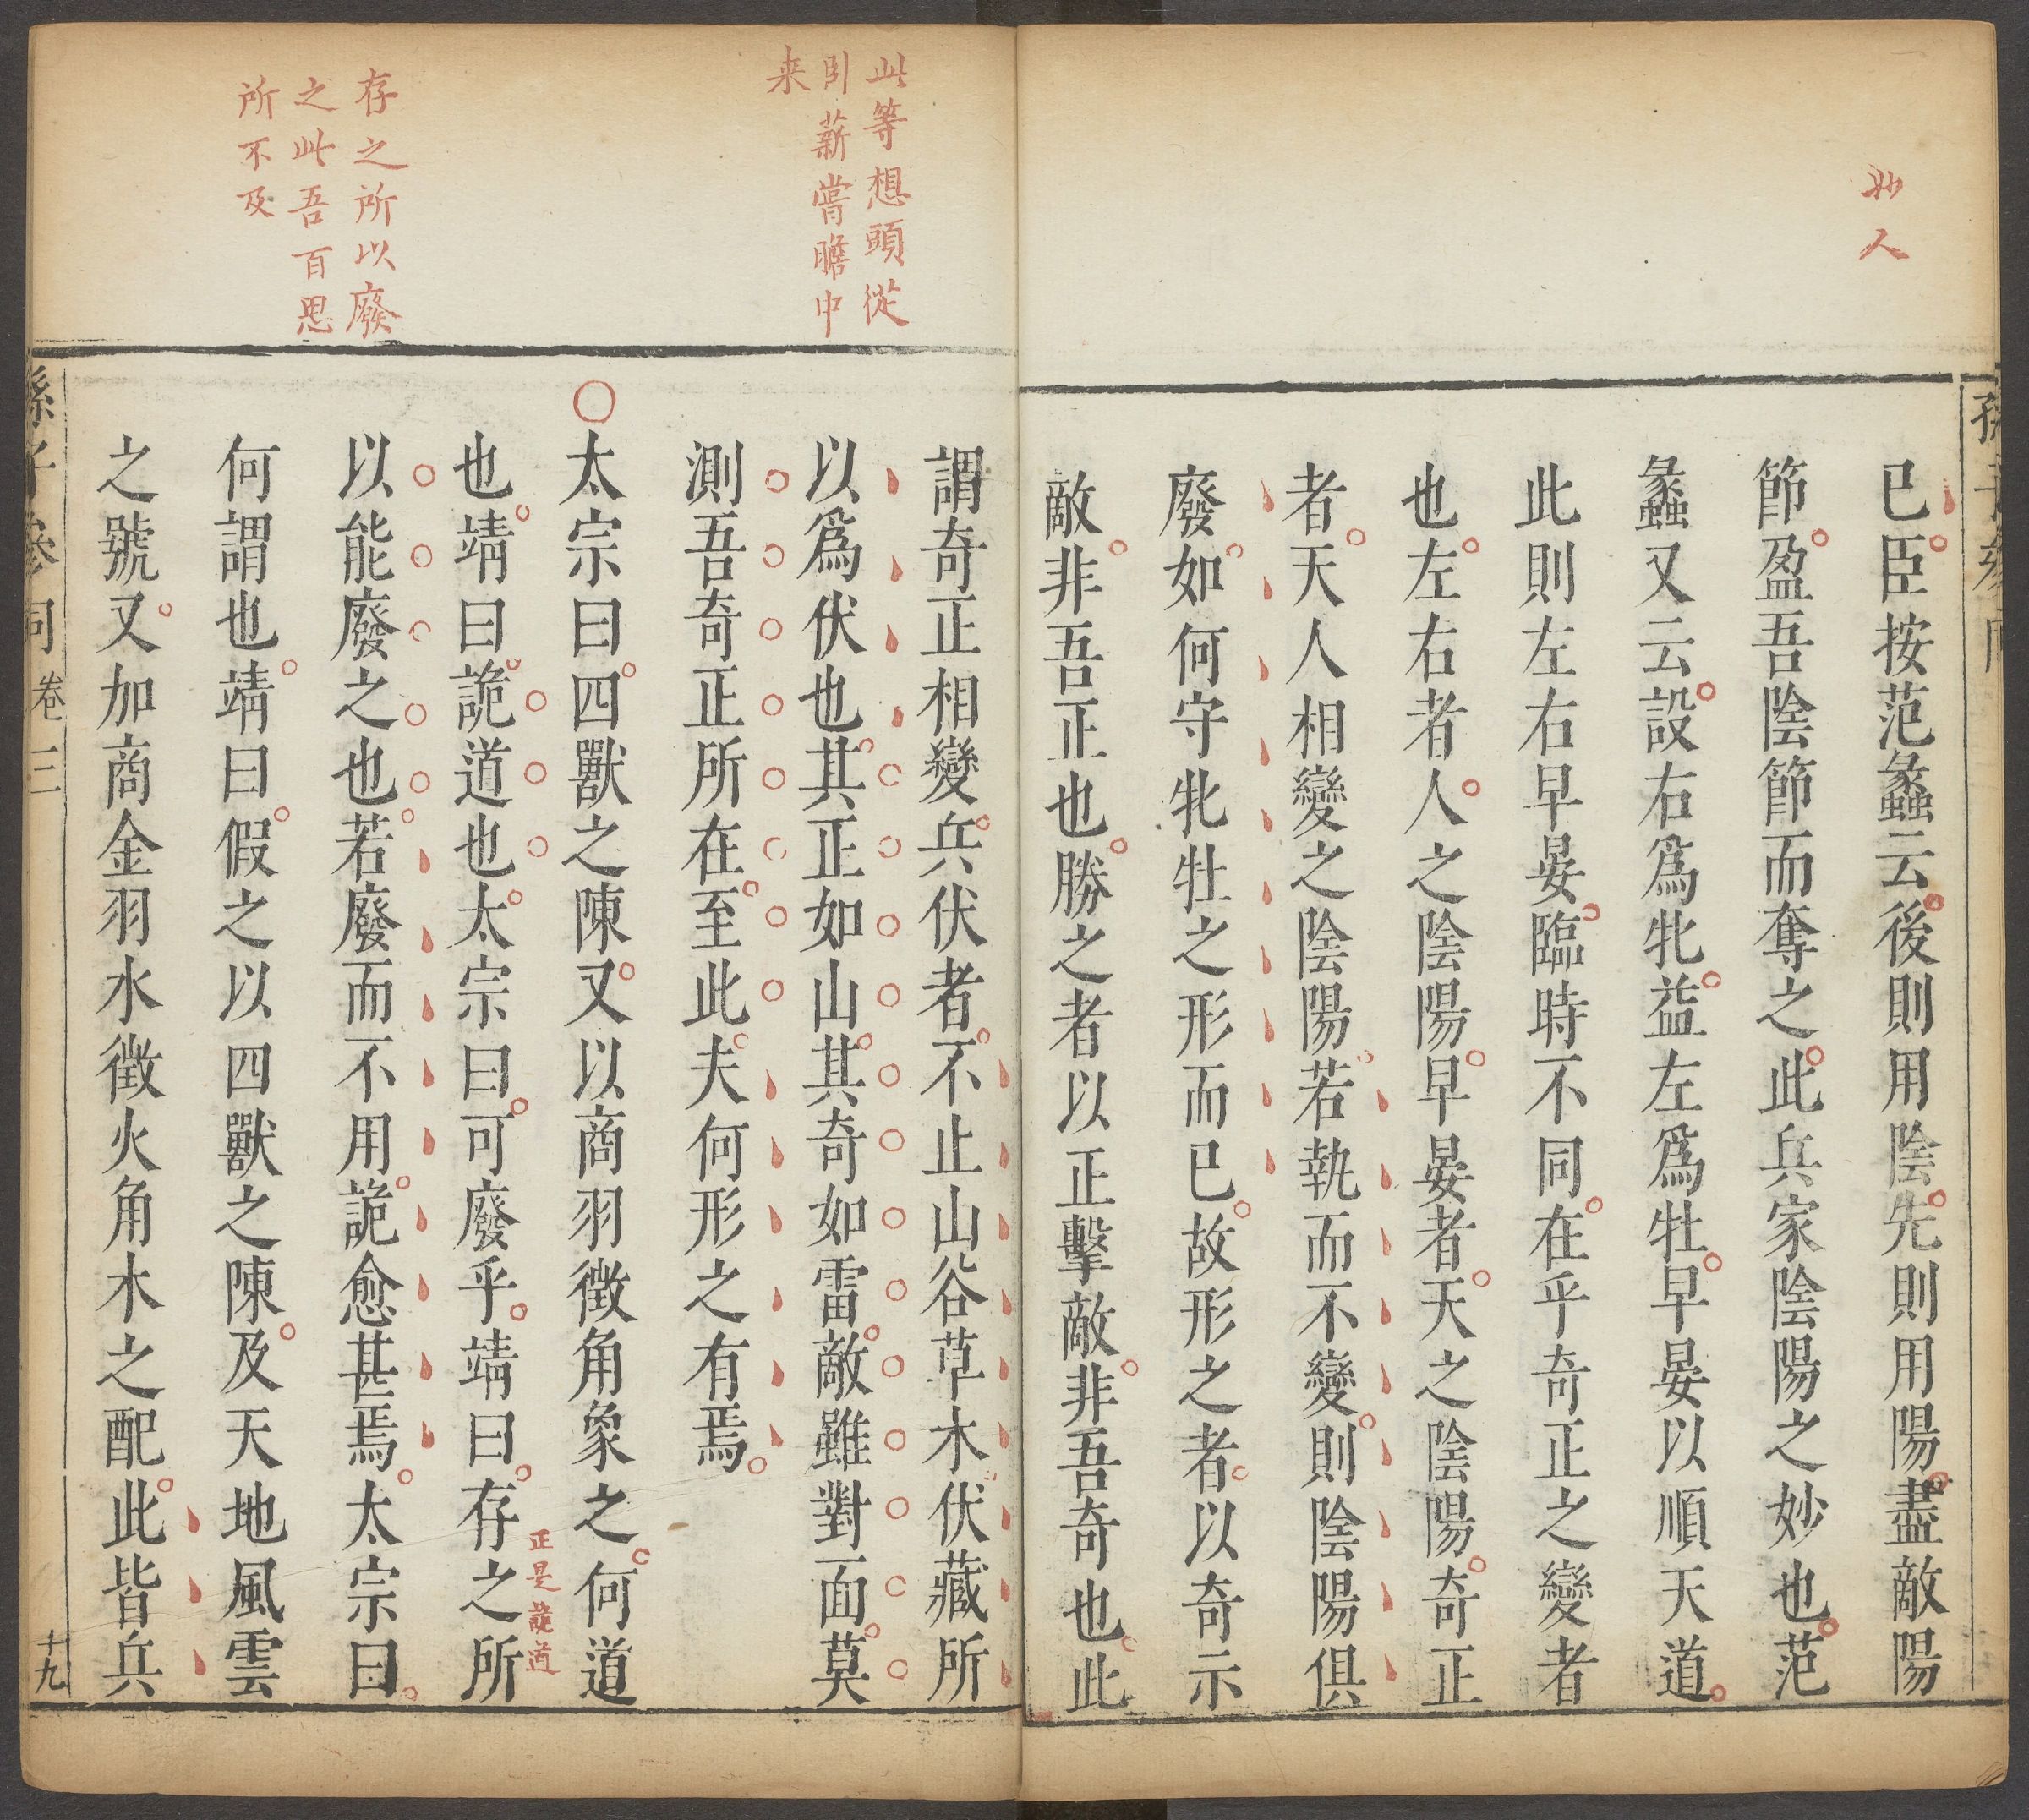 妙人
已臣按范蠡云後則用陰先則用陽盡敵陽
節盈吾陰節而奪之此兵家陰陽之妙也范
蠡又云設右為牝益左為牡早晏以順天道
此則左右早晏臨時不同在乎奇正之變者
也左右者人之陰陽早晏者天之陰陽奇正
者天人相變之陰陽若執而不變則陰陽俱
廢如何守牝牡之形而已故形之者以奇示
敵非吾正也勝之者以正擊敵非吾奇也此
此等想頭從
臥薪嘗膽中
来
存之所以廢
之此吾百思
所不及
謂奇正相變兵伏者不止山谷草木伏藏所
以爲伏也其正如山其奇如雷敵雖對面莫
測吾奇正所在至此夫何形之有焉
太宗曰四獸之陳又以商羽徵角象之何道
也靖曰詭道也太宗曰可廢乎靖曰存之所
正是詭道
以能廢之也若廢而不用詭愈甚焉太宗曰
何謂也靖曰假之以四獸之陳及天地風雲
之號又加商金羽水徵火角木之配此皆兵
孫子參同 卷三 十九